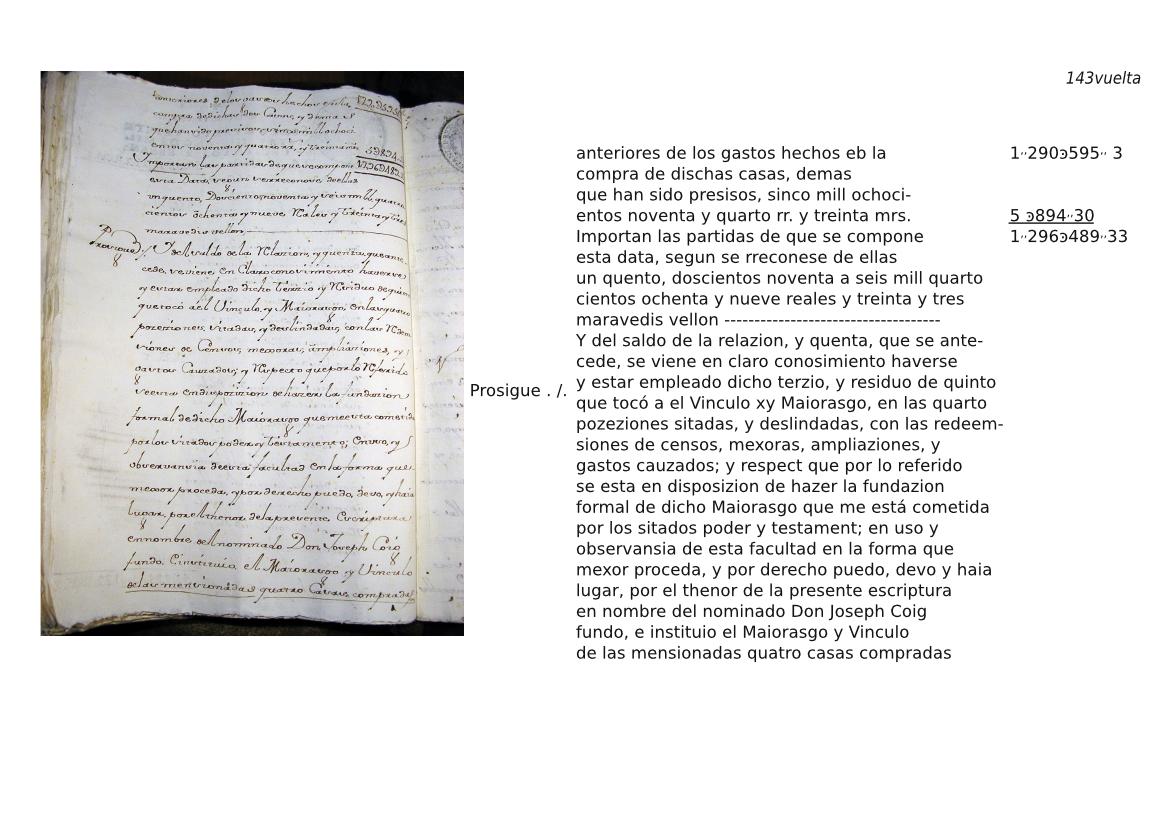 143vuelta
anteriores de los gastos hechos eb la 1··290ↄ595·· 3
compra de dischas casas, demas
que han sido presisos, sinco mill ochoci-
entos noventa y quarto rr. y treinta mrs. 5 ↄ894··30
Importan las partidas de que se compone 1··296ↄ489··33
esta data, segun se rreconese de ellas
un quento, doscientos noventa a seis mill quarto
cientos ochenta y nueve reales y treinta y tres
maravedis vellon ------------------------------------
Y del saldo de la relazion, y quenta, que se ante-
cede, se viene en claro conosimiento haverse
y estar empleado dicho terzio, y residuo de quinto
Prosigue . /. que tocó a el Vinculo xy Maiorasgo, en las quarto
pozeziones sitadas, y deslindadas, con las redeem-
siones de censos, mexoras, ampliaziones, y
gastos cauzados; y respect que por lo referido
se esta en disposizion de hazer la fundazion
formal de dicho Maiorasgo que me está cometida
por los sitados poder y testament; en uso y
observansia de esta facultad en la forma que
mexor proceda, y por derecho puedo, devo y haia
lugar, por el thenor de la presente escriptura
en nombre del nominado Don Joseph Coig
fundo, e instituio el Maiorasgo y Vinculo
de las mensionadas quatro casas compradas